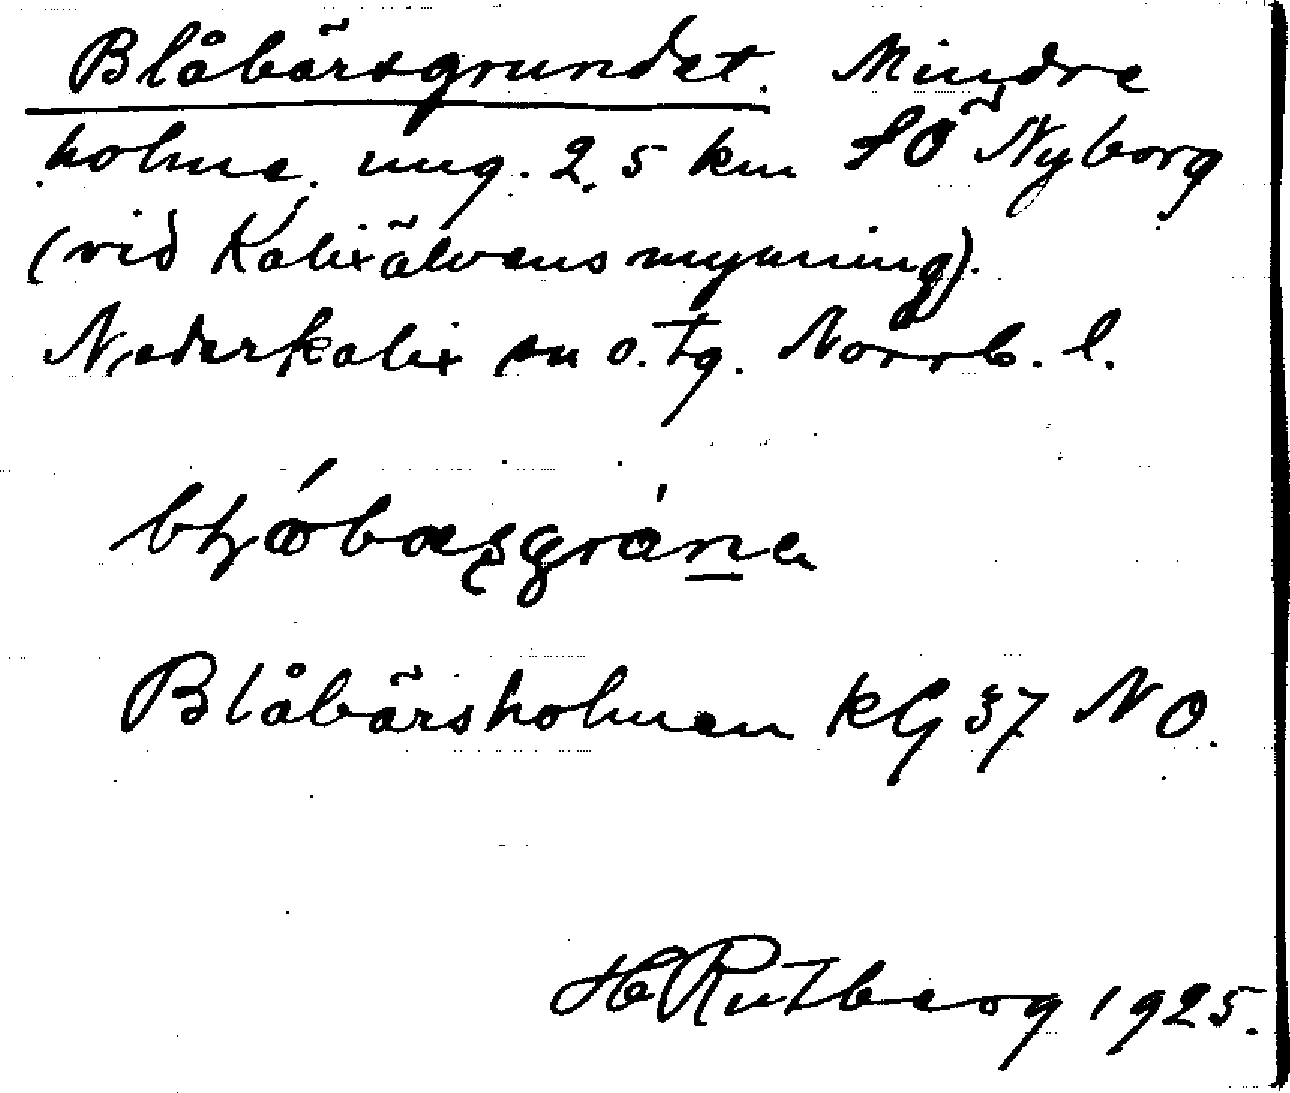 Blåbärsgrundet. Mindre
holme, ung. 2,5 km SÖ Nyborg
(vid Kalixälvens mynning).
Nederkalix sn o. tg. Norrb. l.
Blåbärsholmen KG 37 NO.
H Rutberg 1925.